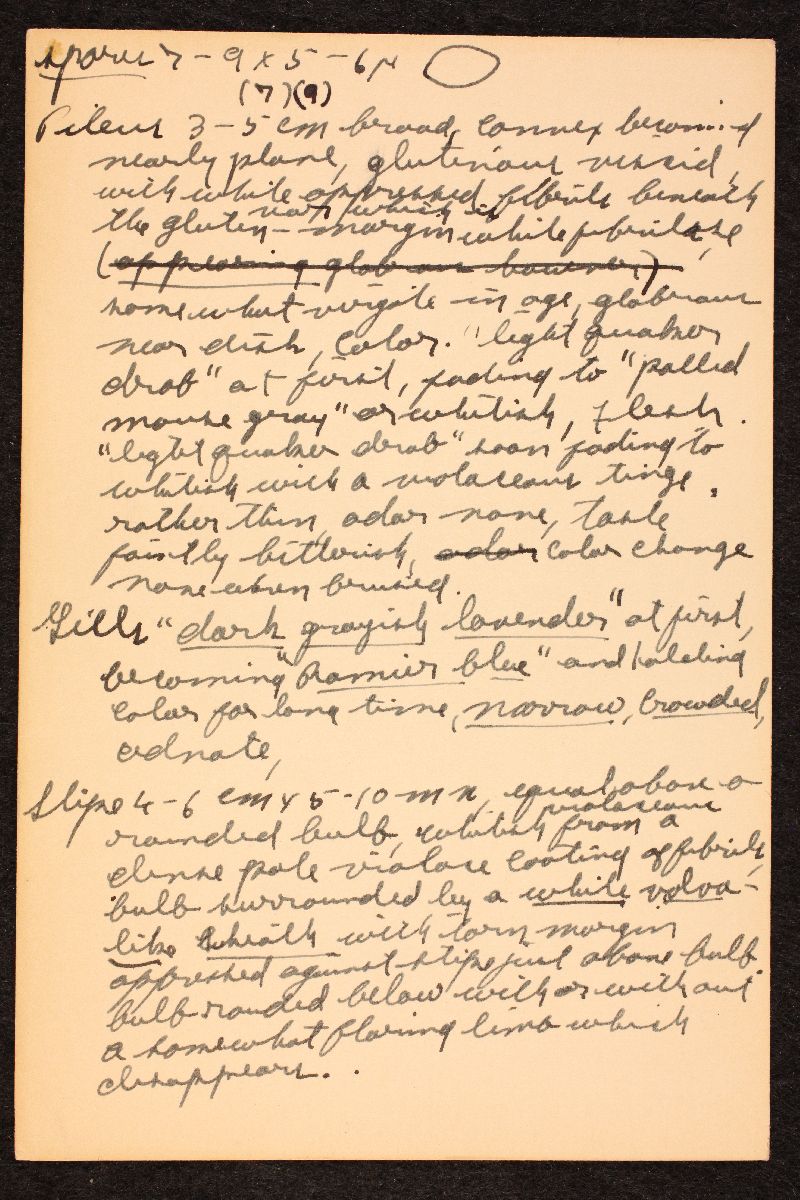 Spores 7 - 9 x 5 - 6µ
(7)(9)
Pileus 3 - 5 cm broad, convex becoming
nearly plane, glutinous viscid,
with white appressed fibrils beneath
the gluten - margin white fibrillose,
(appearing glabrous however,)
somewhat virgate in age, glabrous
near disk, color. "light quaker
drab" at first, fading to "pallid
mouse gray" or whitish, flesh.
"light quaker drab" soon fading to
whitish with a violaceous tinge,
rather thin, odor none, taste
faintly bitterish, odor color change
none when bruised.
Gills "dark grayish lavender" at first,
becoming "Ramier blue" and holding
color for long time, narrow, crowded,
adnate,
Stipe 4 - 6 cm x 5 - 10 mm, equal above a
rounded bulb, whitish violaceous from a
dense pale violace coating of fibrils,
bulb surrounded by a white volva-
like sheath with torn margin
appressed against stipe just above bulb
bulb rounded below with or without
a somewhat flaring limb which
disappears.